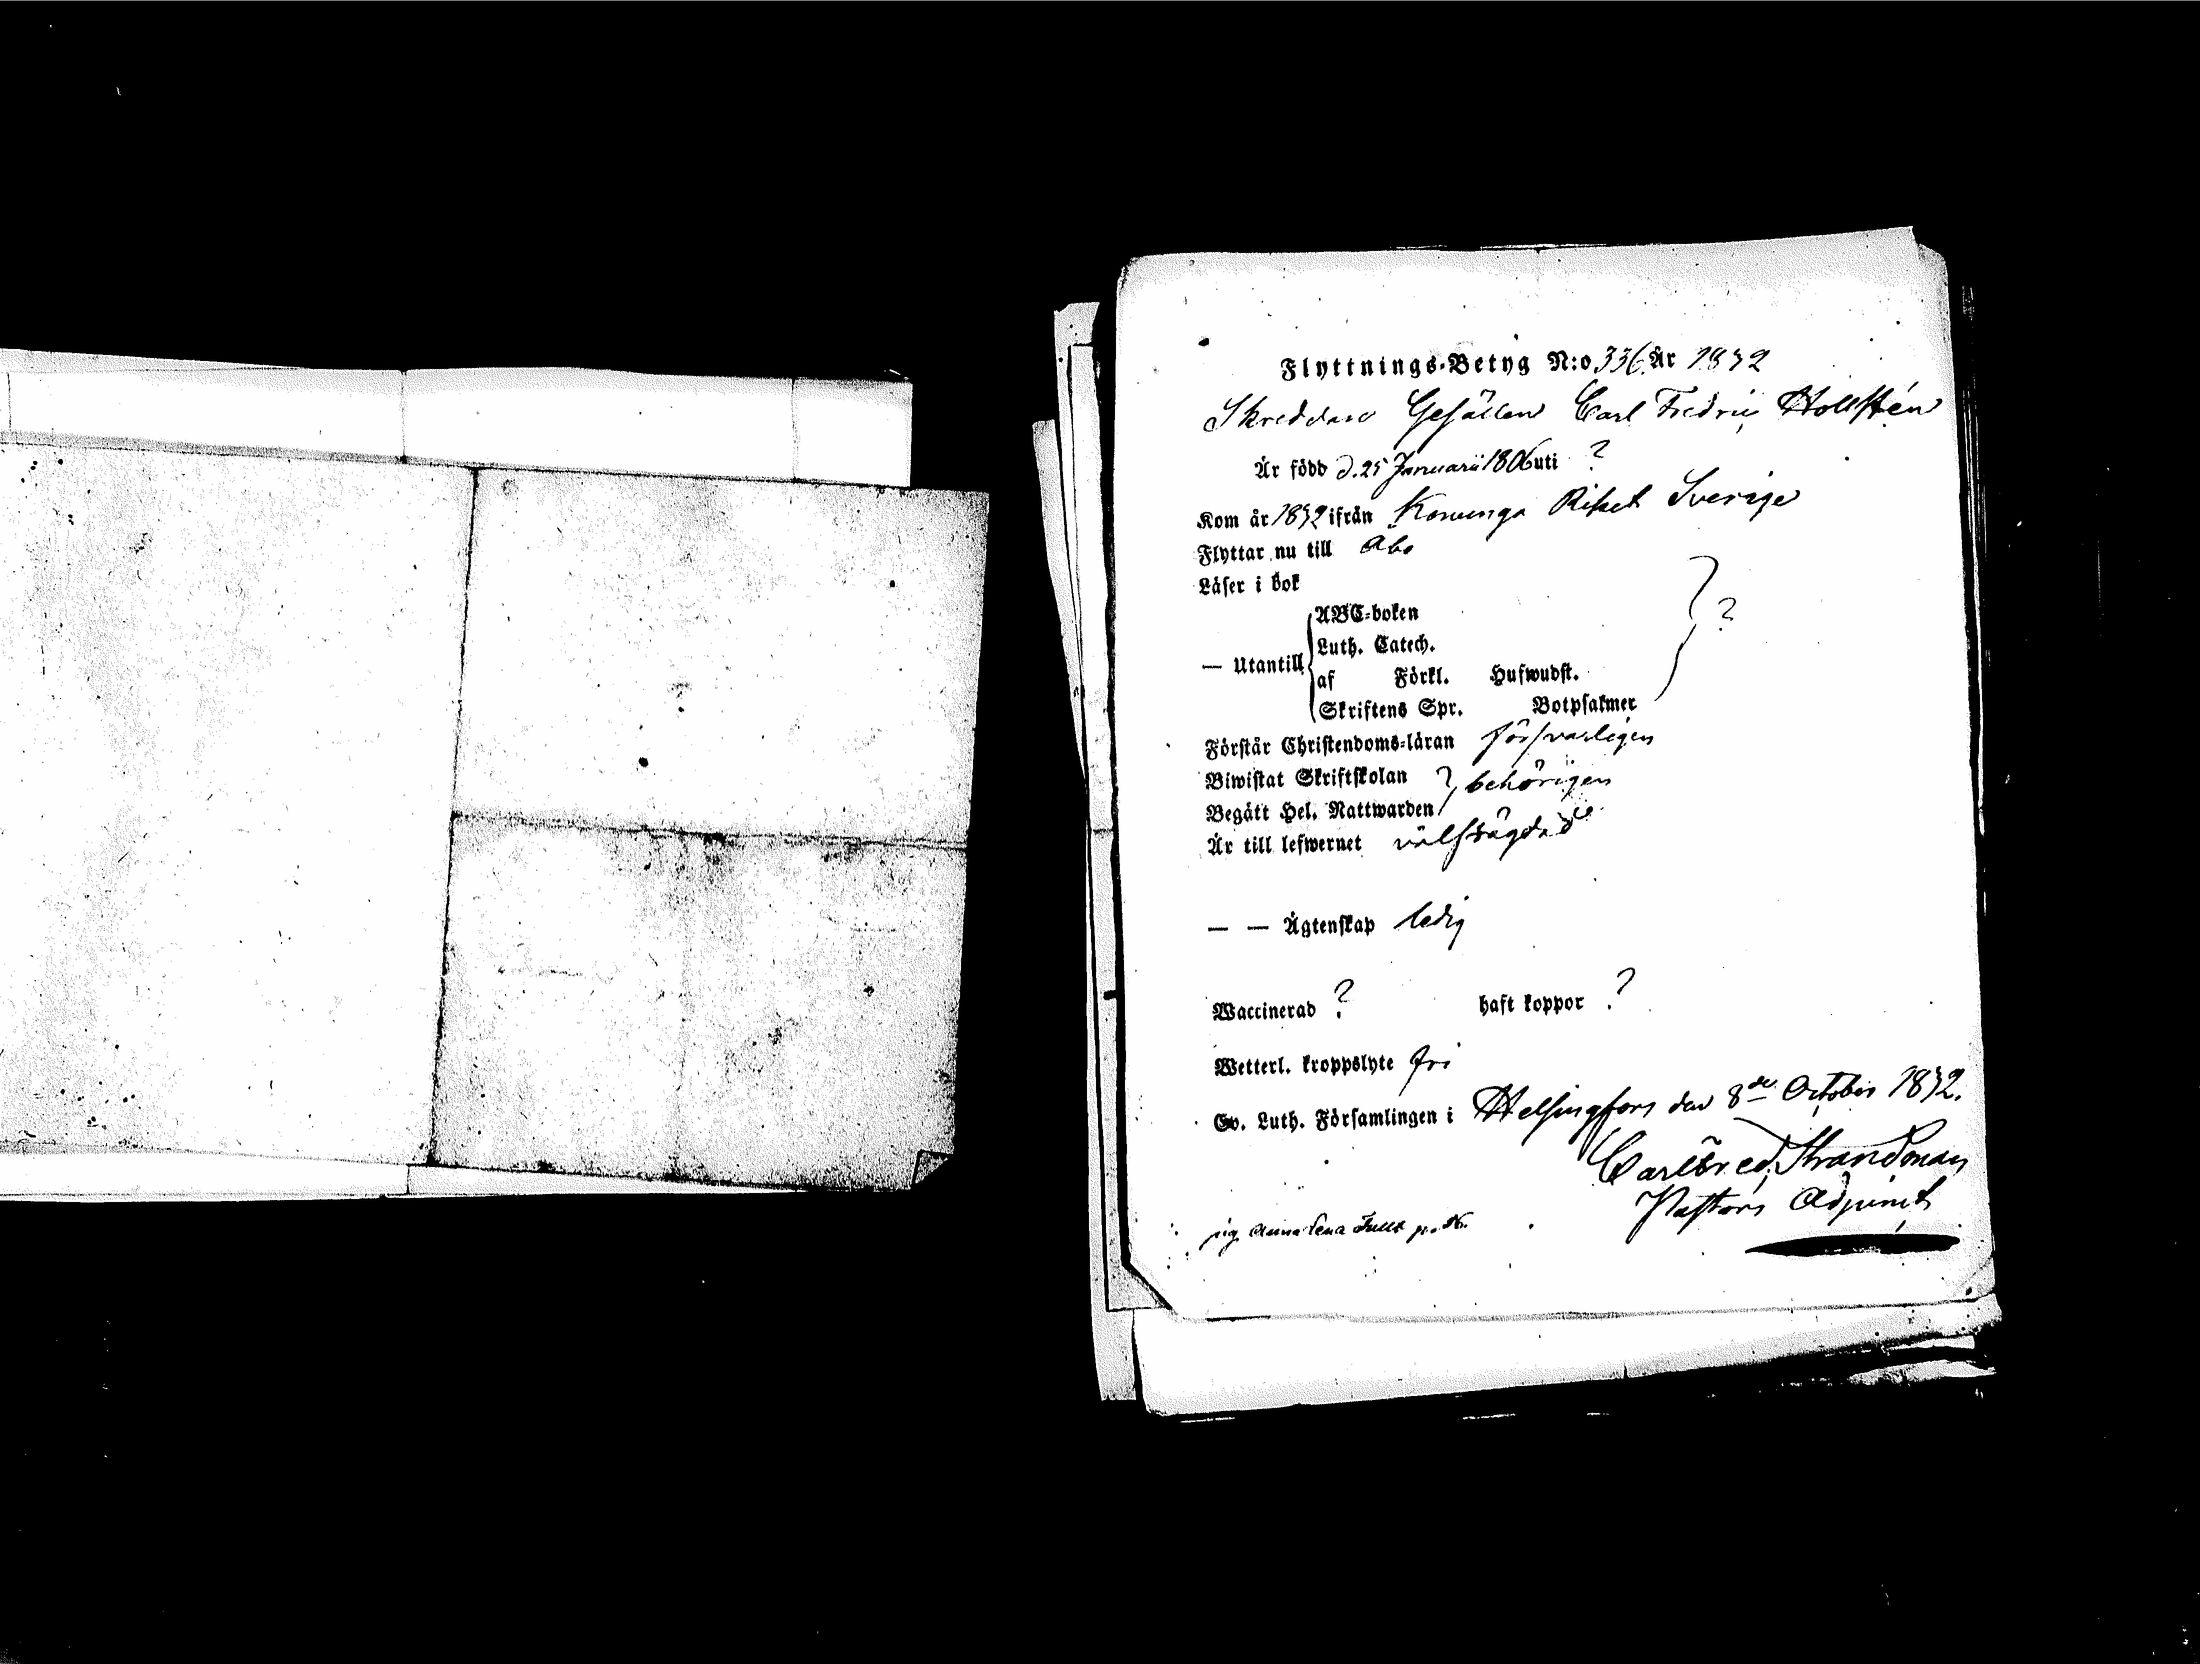 Flyttnings-Betyg N:o 336 År 1832
Skreddare Gesällen Carl Fredric Hollstén
Är född d. 25 Januarii 1806 uti ?
Kom år 1832 ifrån Konunga Riket Sverige
Flyttar nu till Åbo
Läser i bok
ABC-boken
Luth. Catech. ?
— Utantill
af Förkl. Hufwudst.
Skriftens Spr. Botpsalmer
Förstår Christendoms-läran försvarligen
Biwistat Skriftskolan
behörigen
Begått Hel. Nattwarden
Är till lefwernet välfrägdad
— — Ägtenskap ledig
Waccinerad ? haft koppor ?
Wetterl. kroppslyte fri
Ew. Luth. Församlingen i Helsingfors den 8de Octobris 1832.
Carl Fred. Strandman
Pastors Adjunct
pig. Anna Lena